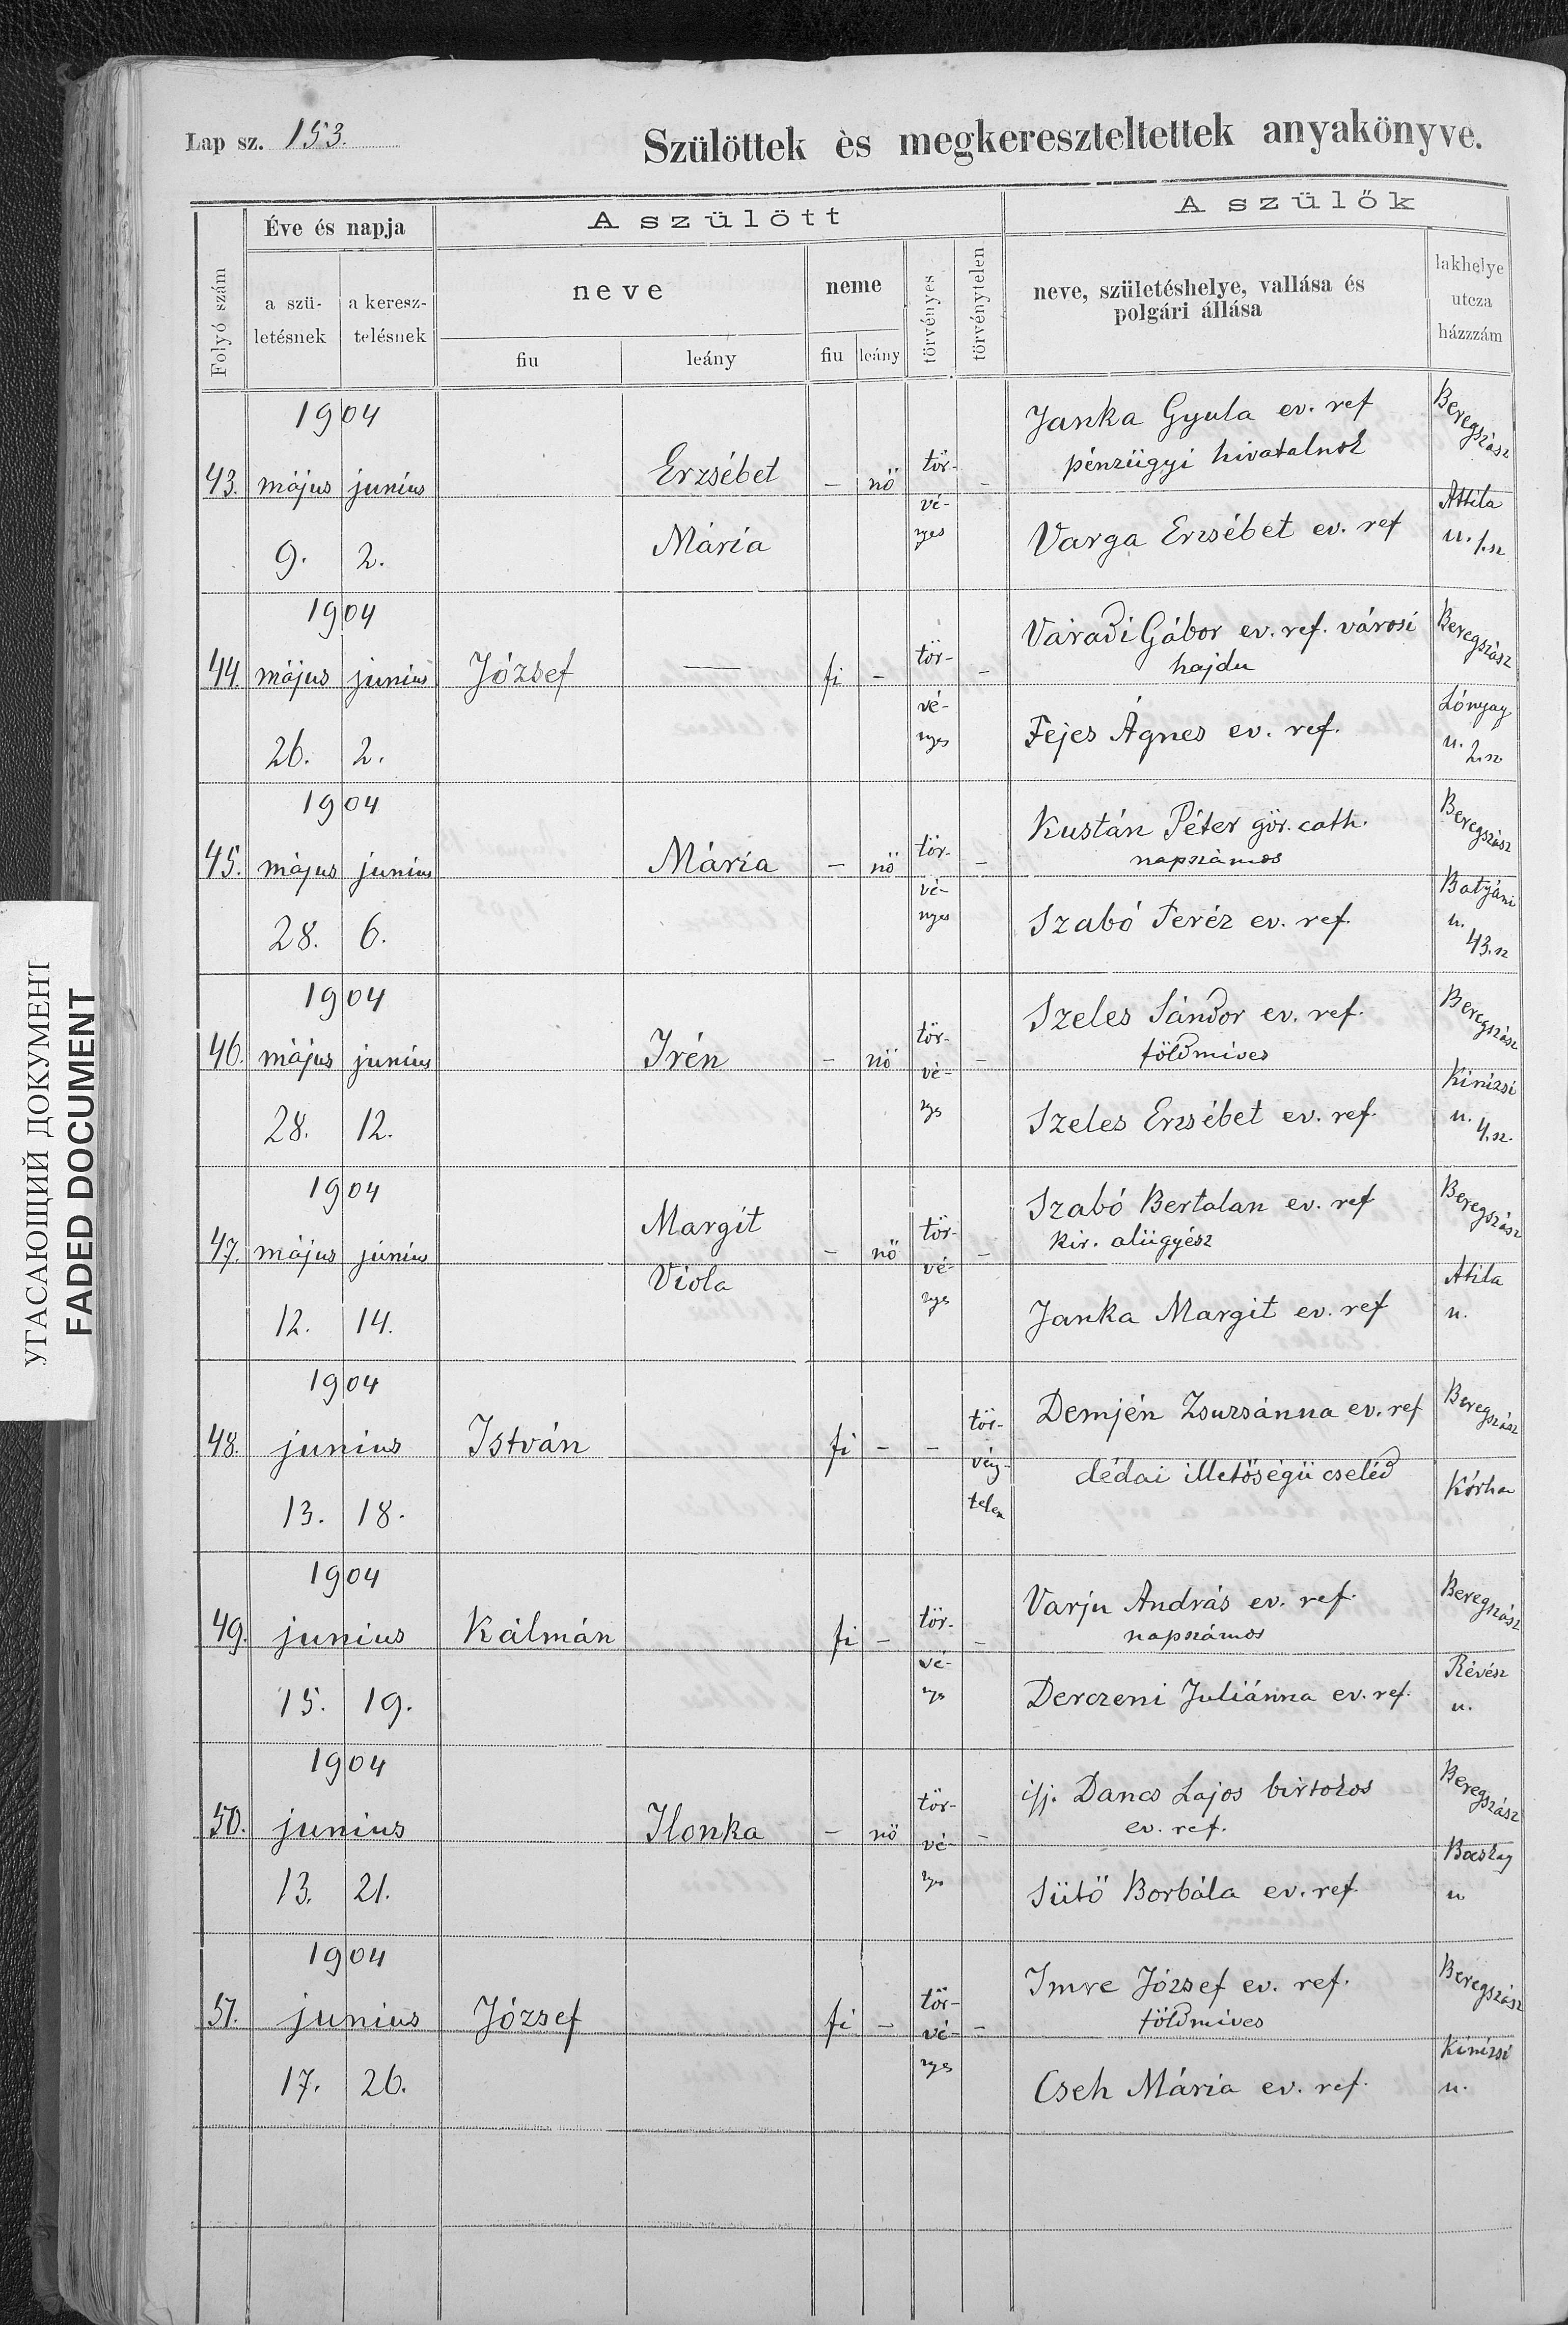 Lap sz. 153.
Szülöttek ès megkereszteltettek anyakönyve.
Folyó szám
Éve és napja
a szü-
letésnek
a keresz-
telésnek
A szülött
neve
fiu
leány
neme
fiu
leány
törvényes
törvénytelen
A szülők
neve, születéshelye, vallása és
polgári állása
lakhelye
utcza
házzzám
1904
43. május junius
9. 2.
Erzsébet
Mária
– nö
tör-
vé-
nyes
–
Janka Gyula ev. ref
pénzügyi hivatalnok
Varga Erzsébet ev. ref
Beregszász
Attila
u. 1.sz
1904
44. május junius
26. 2.
József
—
fi –
tör-
vé-
nyes
–
Váradi Gábor ev. ref. városi
hajdu
Fejes Ágnes ev. ref.
Beregszász
Lónyay
u. 2.sz
1904
45. május junius
28. 6.
Mária
– nö
tör-
vé-
nyes
–
Kustán Péter gör. cath.
napszámos
Szabó Teréz ev. ref.
Beregszász
Batyáni
u.
43.sz
1904
46. május junius
28. 12.
Irén
– nö
tör-
vé-
nys
–
Szeles Sándor ev. ref.
földmives
Szeles Erzsébet ev. ref.
Beregszász
Kinizsi
u. 4.sz.
1904
47. május junius
12. 14.
Margit
Viola
– nö
tör-
vé-
nyes
–
Szabó Bertalan ev. ref
kir. alügyész
Janka Margit ev. ref
Beregszász
Atila
u.
1904
48. junius
13. 18.
István
fi – –
tör-
vény-
telen
Demjén Zsuzsánna ev. ref
dédai illetöségü cseléd
Beregszász
Kórhaz
1904
49. junius
15. 19.
Kálmán
fi –
tör-
vé-
nys
–
Varju András ev. ref.
napszámos
Derczeni Juliánna ev. ref.
Beregszász
Révész
u.
1904
50. junius
13. 21.
Ilonka
– nö
tör-
vé-
nys
–
ifj. Dancs Lajos birtokos
ev. ref.
Sütö Borbála ev. ref
Beregszász
u
1904
51. junius
17. 26.
József
fi –
tör-
vé-
nyes
–
Imre József ev. ref.
földmives
Cseh Mária ev. ref.
Beregszász
Kinizsi
u.
УГАСАЮЩИЙ ДОКУМЕНТ
FADED DOCUMENT